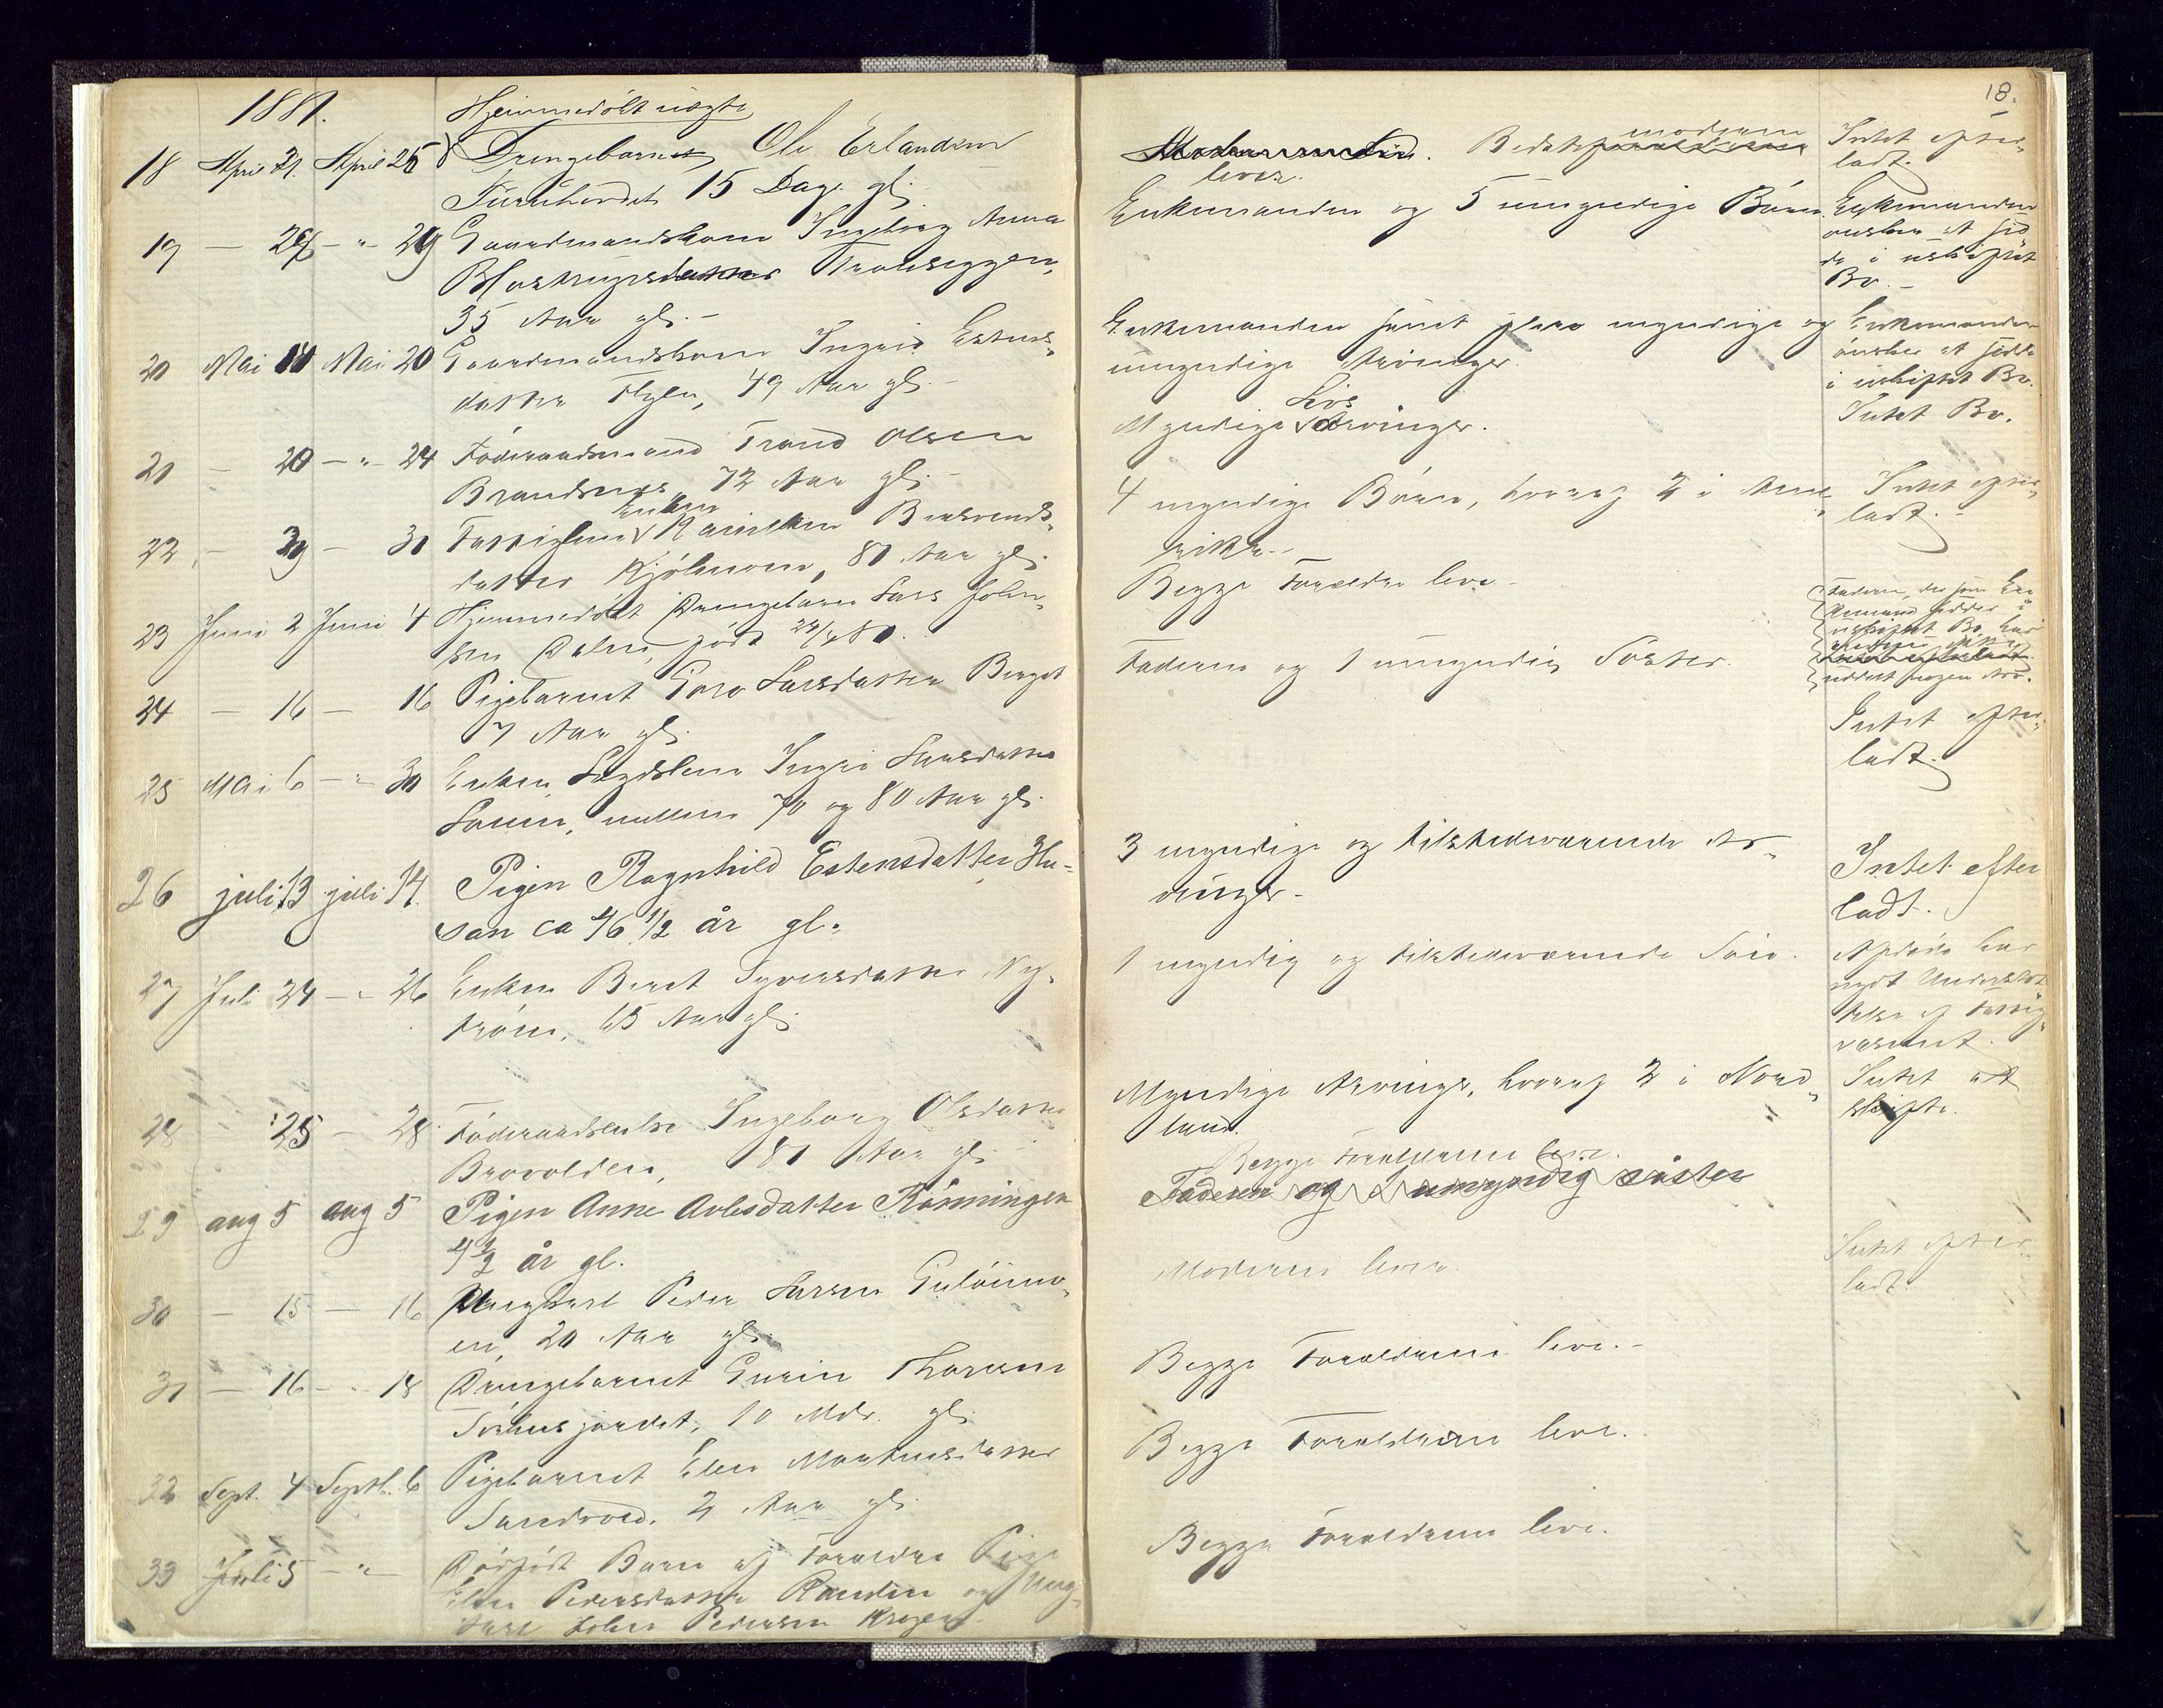 1881.
Hjemmedøbt uægte
18 April 21. April 25 Drengebarnet Ole Erlandsen
Furuhovdet 15 Dage gl.
19 — 26 — " 29 Gaardmandskone Ingeborg Anna
35 Aar gl. —
20 Mai 10 Mai 20 Gaardmandskone Ingrid Estens-
datter Flyen, 49 Aar gl. —
21 — 20 — " 24 Føderaadsmand Trond Olsen
72 Aar gl. —
Enken
22 — 29 — 30 Fattiglem
datter Kjølmoen, 80 Aar gl.
23 Juni 2 Juni 4 Hjemmedøbt Drengebarn Lars John-
sen Dalen, født
24 — 16 — 16 Pigebarnet Goro Larsdatter Berget
7 Aar gl.
25 Mai 6 — " 30 Enken, Lægdslem Ingri Larsdatter
mellem 70 og 80 Aar gl.
26 juli 13 juli 14. Pigen Ragnhild Estensdatter Hu-
san ca 46 1/2 år gl.
27 Juli 24 — " 26 Enken Beret Syversdatter Ny-
trøen, 65 Aar gl.
28 25 — 28 Føderaadsenke Ingeborg Olsdatter
Brovolden, 81 Aar gl. —
29 aug 5 aug 5 Pigen Anne Avlesdatter Rønningen
4 1/2 år gl.
30 — 15 — 16 Ungkarl Peder Larsen Guløimo-
en, 20 Aar gl.
31 — 16 — " 18 Drengebarnet Thoresen
10 Mdr. gl.
32 Sept. 4 Septb. 6 Pigebarnet Elen Martinusdatter
Sandvold. 2 Aar gl.
33 Juli 5 — " — Dødfødt Barn af Forældre Pige
Elen Pedersdatter Randen og Ung-
karl John Pedersen Krogen.
18.
moderen
lever.
Enkemanden og 5 umyndige Børn.
Enkemanden samt flere myndige og
umyndige Arvinger.
Livs
Myndige Arvinger.
4 myndige Børn, hvoraf 2 i Ame-
rika. —
Begge Forældre leve —
Faderen og 1 umyndig Søster.
3 myndige og tilstedeværende Ar-
vinger —
1 myndig og tilstedeværende Søn.
Myndige Arvinger, hvoraf 2 i Nord-
land.
Begge Forældrene leve.
Faderen og 1 umyndig søster
Moderen lever.
Begge Forældrene leve. —
Begge Forældrene leve.
Begge Forældrene leve.
Intet efter-
ladt.
Enkemanden
ønsker at sid-
de i uskiftet
Bo. —
Enkemanden
ønsker at sidde
i uskiftet Bo.
Intet Bo.
Intet efter-
ladt. —
Faderen, der som En-
kemand sidder i
uskiftet Bo, har
uddelt nogen Arv.
Intet efter-
ladt.
Intet efter
ladt.
Afdøde har
nydt Understøt-
telse af Fattig-
væsenet.
Intet at
skifte.
Intet efter-
ladt.